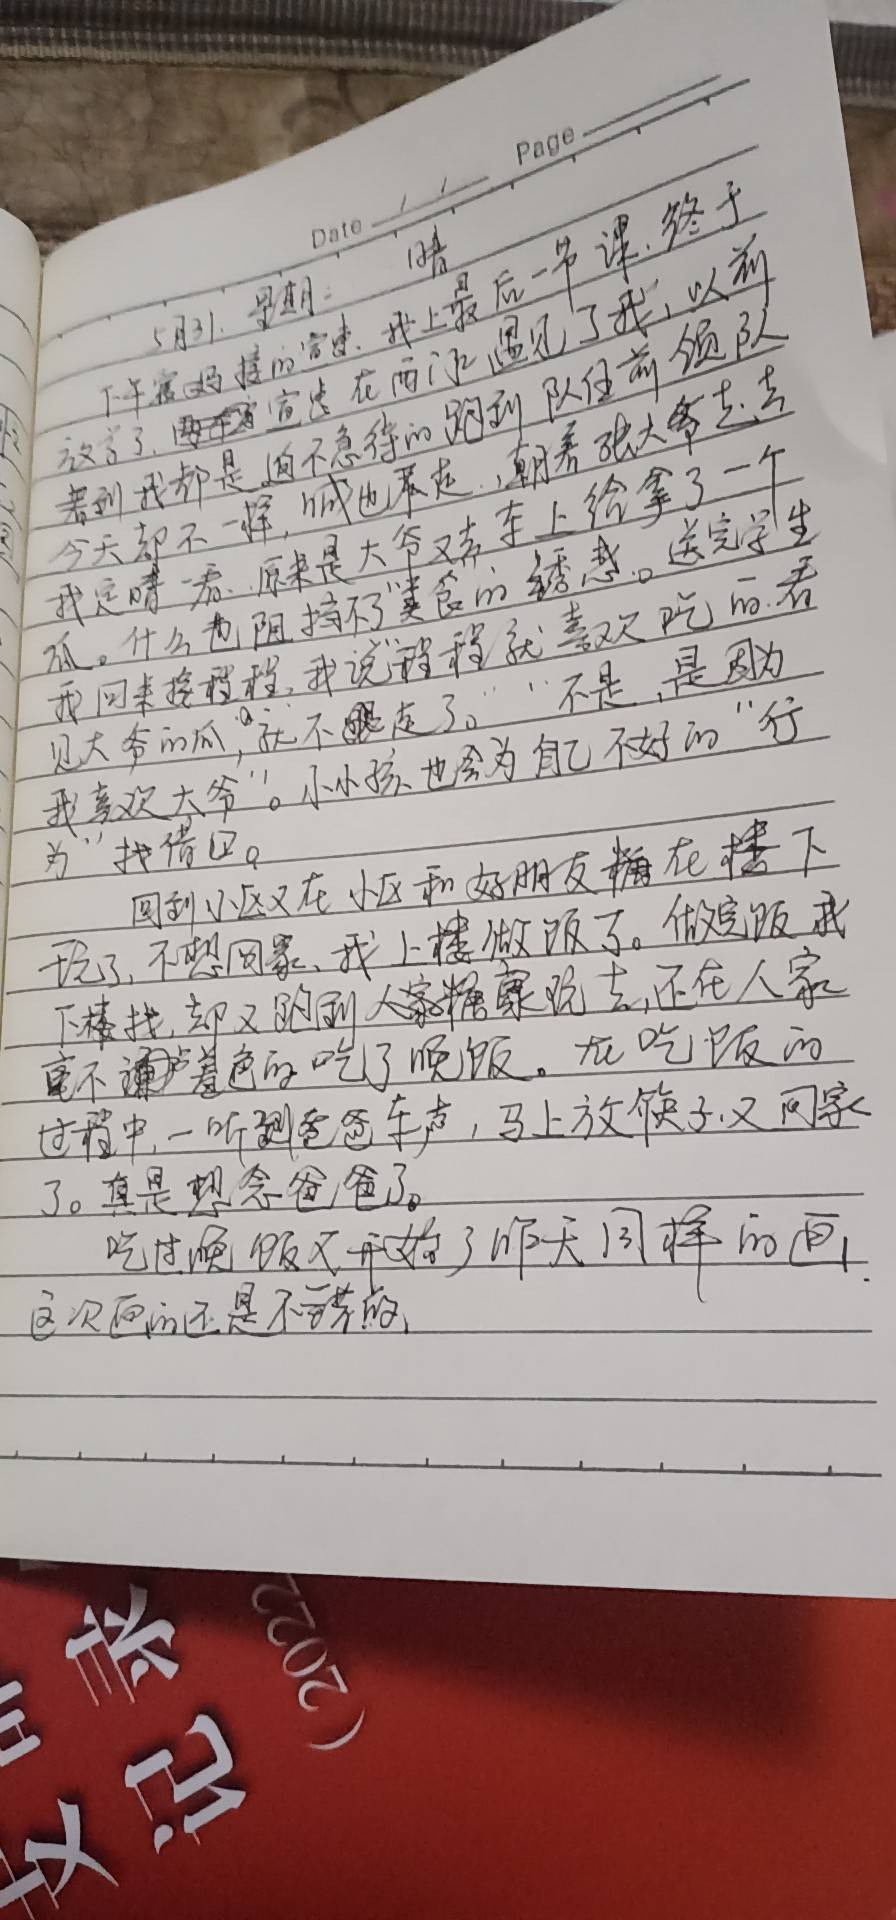 Page
Date / /
5月31. 星期: 晴
下午宸妈接的宸宸. 我上最后一节课. 终于
放学了. 在西门口遇见了我, 以前
看到我都是迫不急待的跑到队伍前领队
今天却不一样, 喊也不走, 朝着张大爷走去
我定睛一看. 原来是大爷又弄车上给拿了一个
瓜。什么也阻挡不了"美食的锈惑。送完学生
我回来接程程, 我说"程程就喜欢吃的. 看
见大爷的瓜, 就不走了。" "不是, 是因为
我喜欢大爷"。小小孩也会为自己不好的"行
为"找借口。
回到小区又在小区和好朋友糖在楼下
玩了, 不想回家、我上楼做饭了。做完饭我
下楼找, 却又跑到人家糖家玩去, 还在人家
毫不羞色的吃了晚饭。在吃饭的
过程中, 一听到爸爸车声, 马上放筷子. 又回家
了。真是想念爸爸了。
吃过晚饭又开始了昨天同样的画,
这次画的还是不错的,
录
记
(2022